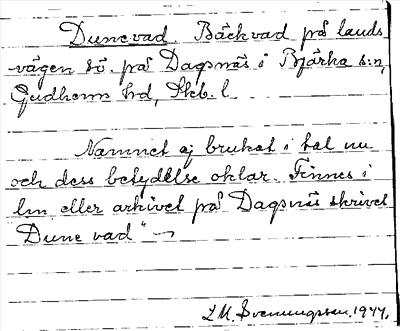 Dunevad Bäckvad på lands
vägen sö. på Dagsnäs i Bjärka s:n,
Gudhems hd, Skb. l.
Namnet ej brukat i tal nu
och dess betydelse oklar. Finnes i
lm eller arkivet på Dagsnäs skrivet
Dune vad"
L M. Svenungsson. 1944.